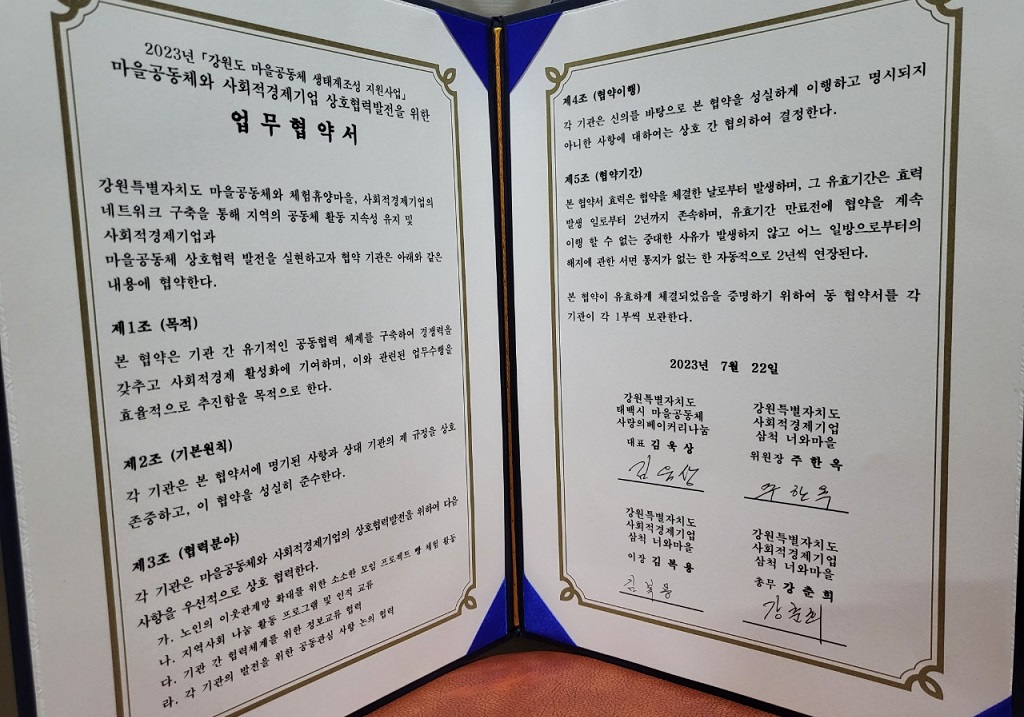 2023년 「강원도 마을공동체 생태계조성 지원사업」
마을공동체와 사회적경제기업 상호협력발전을 위한
업무협약서
강원특별자치도 마을공동체와 체험휴양마을, 사회적경제기업의
네트워크 구축을 통해 지역의 공동체 활동 지속성 유지 및
사회적경제기업과
마을공동체 상호협력 발전을 실현하고자 협약 기관은 아래와 같은
내용에 협약한다.
제1조 (목적)
본 협약은 기관 간 유기적인 공동협력 체제를 구축하여 경쟁력을
갖추고 사회적경제 활성화에 기여하며, 이와 관련된 업무수행을
효율적으로 추진함을 목적으로 한다.
제2조 (기본원칙)
각 기관은 본 협약서에 명기된 사항과 상대 기관의 제 규정을 상호
존중하고, 이 협약을 성실히 준수한다.
제3조 (협력분야)
각 기관은 마을공동체와 사회적경제기업의 상호협력발전을 위하여 다음
사항을 우선적으로 상호 협력한다.
가. 노인의 이웃관계망 확대를 위한 소소한 모임 프로젝트 빵 체험 활동
나. 지역사회 나눔 활동 프로그램 및 인적 교류
다. 기관 간 협력체계를 위한 정보교류 협력
라. 각 기관의 발전을 위한 공동관심 사항 논의 협력
제4조 (협약이행)
각 기관은 신의를 바탕으로 본 협약을 성실하게 이행하고 명시되지
아니한 사항에 대하여는 상호 간 협의하여 결정한다.
제5조 (협약기간)
본 협약서 효력은 협약을 체결한 날로부터 발생하며, 그 유효기간은 효력
발생 일로부터 2년까지 존속하며, 유효기간 만료전에 협약을 계속
이행 할 수 없는 중대한 사유가 발생하지 않고 어느 일방으로부터의
해지에 관한 서면 통지가 없는 한 자동적으로 2년씩 연장된다.
본 협약이 유효하게 체결되었음을 증명하기 위하여 동 협약서를 각
기관이 각 1부씩 보관한다.
2023년 7월 22일
강원특별자치도
태백시 마을공동체
사랑의베이커리나눔
대표 김욱상
강원특별자치도
사회적경제기업
삼척 너와마을
위원장 주한옥
주한옥
강원특별자치도
사회적경제기업
삼척 너와마을
이장 김복용
김복용
강원특별자치도
사회적경제기업
삼척 너와마을
총무 강춘희
강춘희